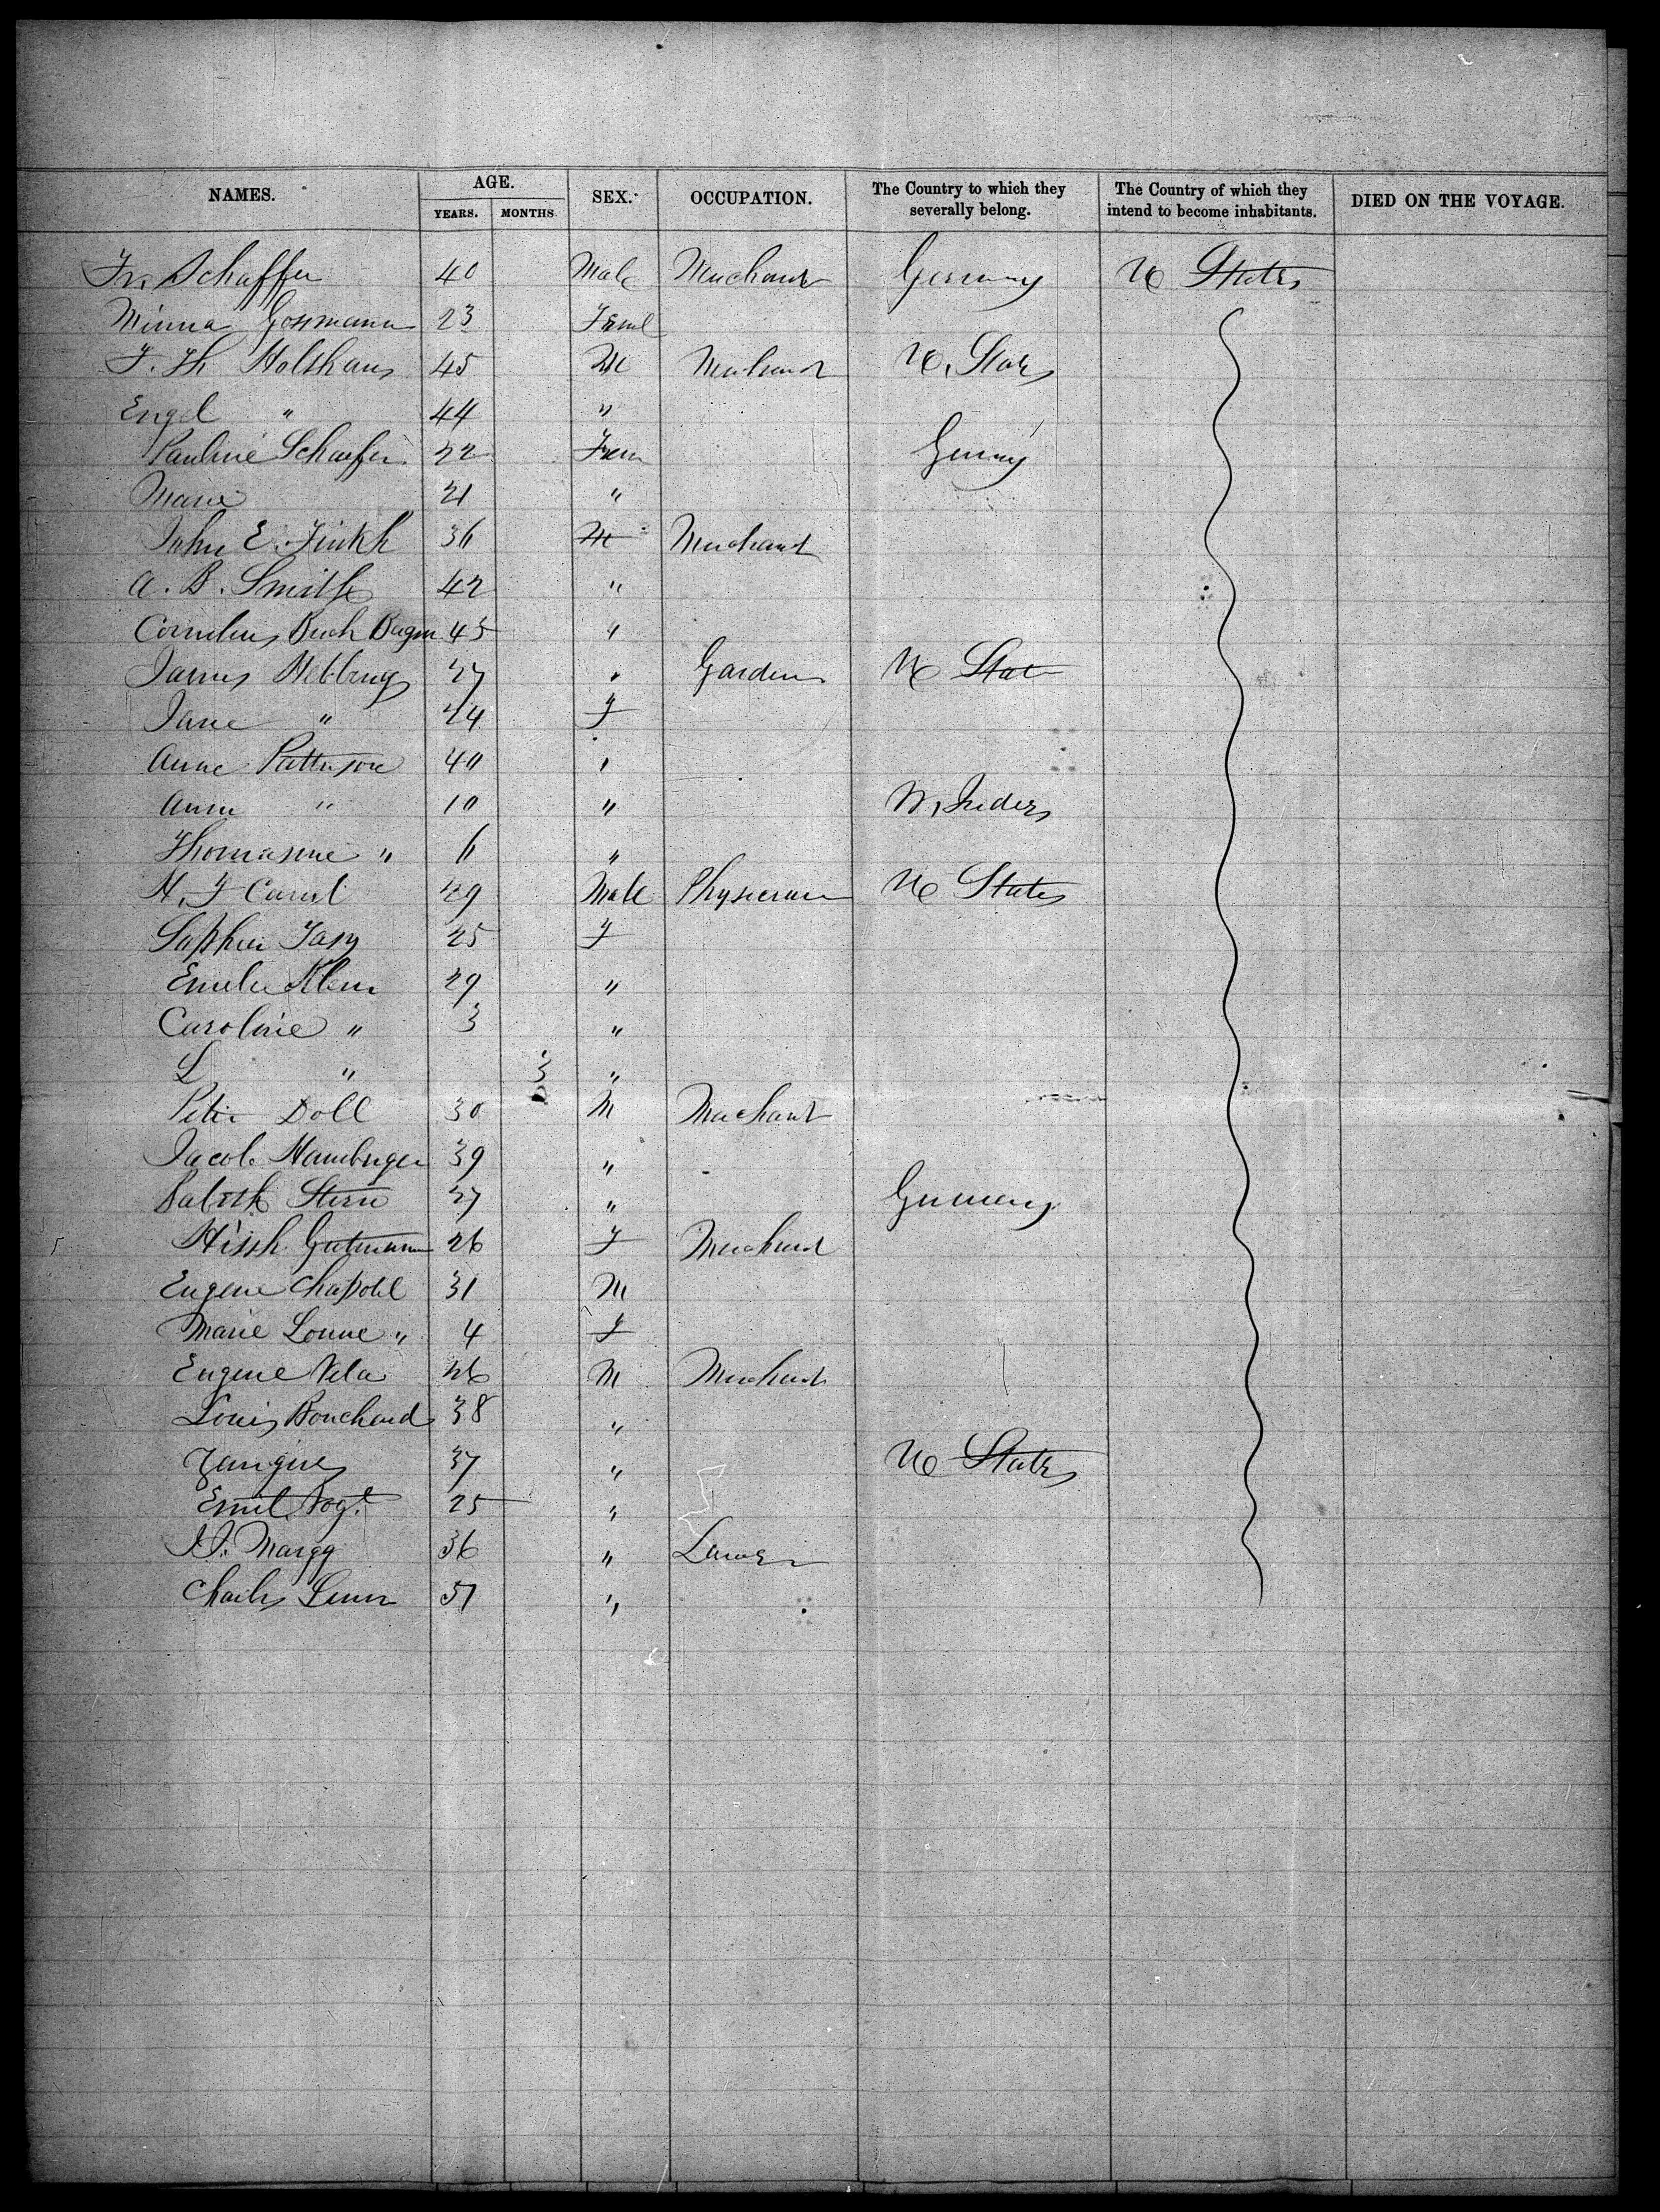 NAMES. AGE. SEX. OCCUPATION. The Country to which they severally belong. The Country of which they intend to become inhabitants. DIED ON THE VOYAGE.
YEARS. MONTHS.
Fr. Schaffer 40 Male Merchant Germany U States
Minna Gossmann 23 Feml
F. H. Holthaus 45 M Merchant U. States
Engel " 44 "
Pauline Schaefer 22 Fem Germy
Marie 21 "
John E. Finkh 36 M Merchant
A. B. Smith 42 "
Cornelius Buch 45 "
James Hebberg 27 " Gardener U State
Jane " 24 F
Anne Patterson 40 "
Ann " 10 " W. Indies
Thomasine " 6 "
H. F 29 Male Physician U States
Sophia 25 F
Emelie Klein 29 "
Caroline " 3 "
L " 3 "
Peter Doll 30 M Merchant
Jacob Hamburger 39 "
Stern 27 " Germany
Hirsh Gutmann 26 F Merchant
Eugene Chapotel 31 M
Marie Louise " 4 F
Eugene Vela 26 M Merchant
Louis Bouchard 38 "
37 " U States
Emil Vogt 25 "
Margg 36 "
Charles 51 "